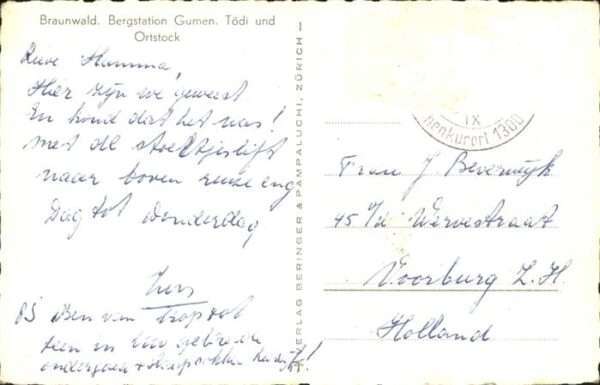 Braunwald. Bergstation Gumen. Tödi und
Ortstock
Lieve Mamma,
Hier zijn we geweest
En koud dat het was!
met de stoeltjeslift
naar boven reuze eng
Dag tot Donderdag
PS Ben van
teen in
ondergoed
VERLAG BERINGER & PAMPALUCHI, ZÜRICH
IX
nenkurort 1300
Frau J Beverwijk
45 v/d Wervestraat
Voorburg Z.H.
Holland